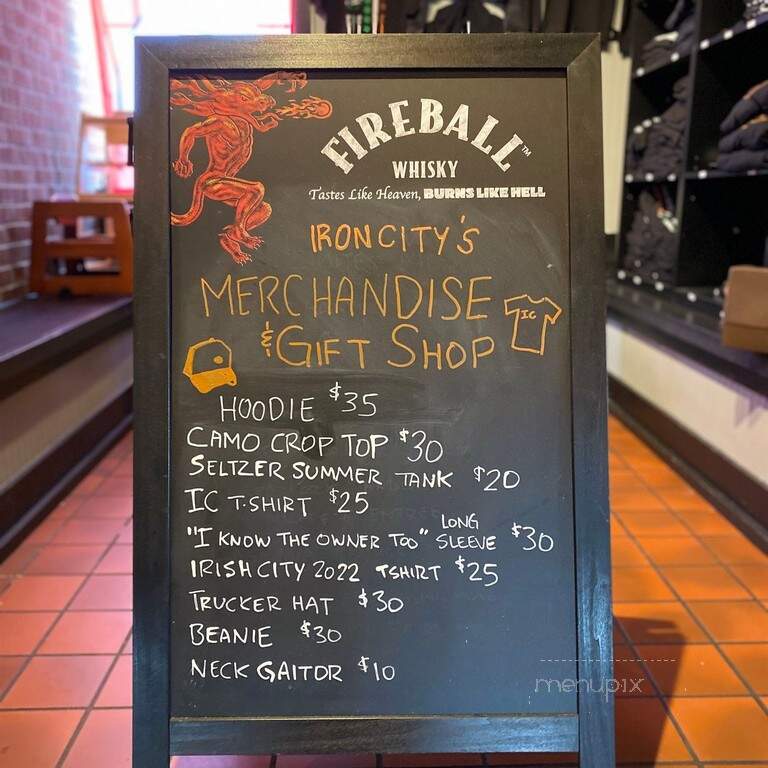 FIREBALL™
WHISKY
Tastes Like Heaven, BURNS LIKE HELL
IRON CITY'S
MERCHANDISE
& GIFT SHOP
IC
HOODIE $35
CAMO CROP TOP $30
SELTZER SUMMER TANK $20
IC T-SHIRT $25
"I KNOW THE OWNER TOO" LONG SLEEVE $30
IRISH CITY 2022 TSHIRT $25
TRUCKER HAT $30
BEANIE $30
NECK GAITOR $10
menupix